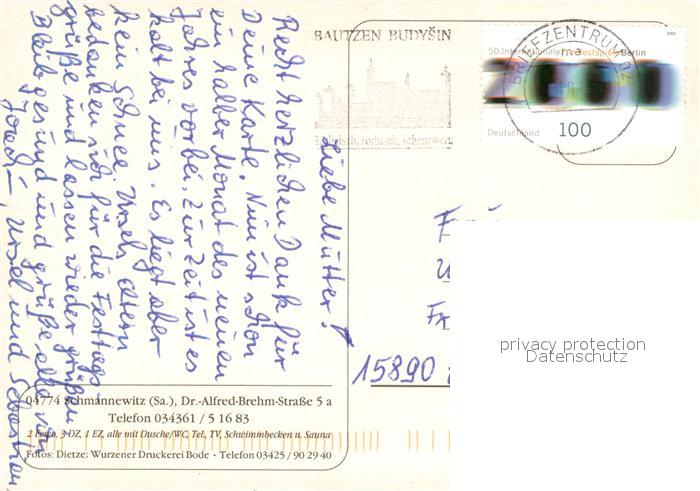 BAUTZEN BUDYŠIN
sorbisch, sehenswert
BRIEFZENTRUM 02
50. Internationale Filmfestspiele Berlin
Deutschland
100
Liebe Mutter!
Recht herzlichen Dank für
Deine Karte. Nun ist schon
ein halber Monat des neuen
Jahres vorbei. Zur Zeit ist es
kalt bei uns. Es liegt aber
kein Schnee. Ursels Eltern
bedanken sich für die Festtags
grüße und lassen wieder grüßen
Bleib gesund und grüße alle von
Ursel und Sebastian
15890
privacy protection
Datenschutz
04774 Schmannewitz (Sa.), Dr.-Alfred-Brehm-Straße 5 a
Telefon 034361 / 5 16 83
3 DZ, 1 EZ, alle mit Dusche/WC, Tel., TV, Schwimmbecken u. Sauna
Fotos: Dietze; Wurzener Druckerei Bode · Telefon 03425 / 90 29 40